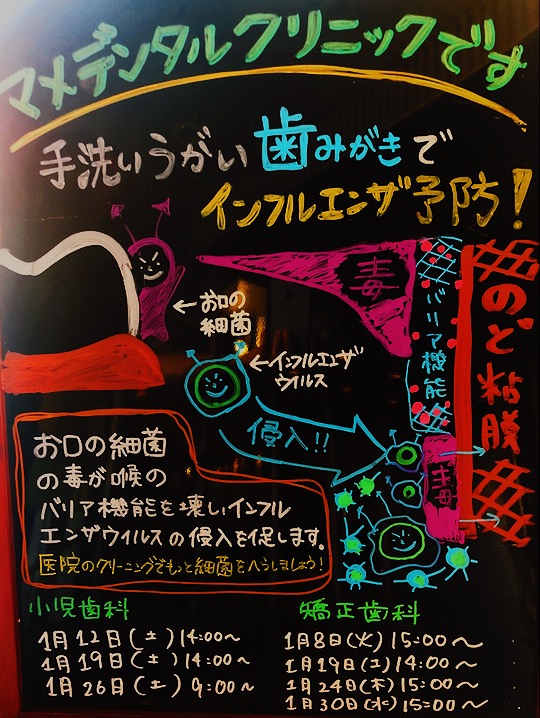 マメデンタルクリニックです
手洗いうがい歯みがきで
インフルエンザ予防!
毒
バリア機能
のど粘膜
←お口の
細菌
←インフルエンザ
ウイルス
侵入!!
毒
お口の細菌
の毒が喉の
バリア機能を壊しインフル
エンザウイルスの侵入を促します。
医院のクリーニングでもっと細菌をへらしましょう!
小児歯科
1月12日(土)14:00~
1月19日(土)14:00~
1月26日(土)9:00~
矯正歯科
1月8日(火)15:00~
1月19日(土)14:00~
1月24日(木)15:00~
1月30日(水)15:00~